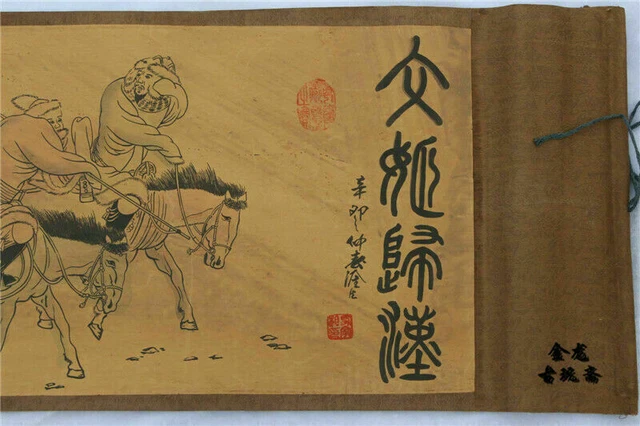 文姬歸漢
辛卯之仲春
金龙
古琓斋